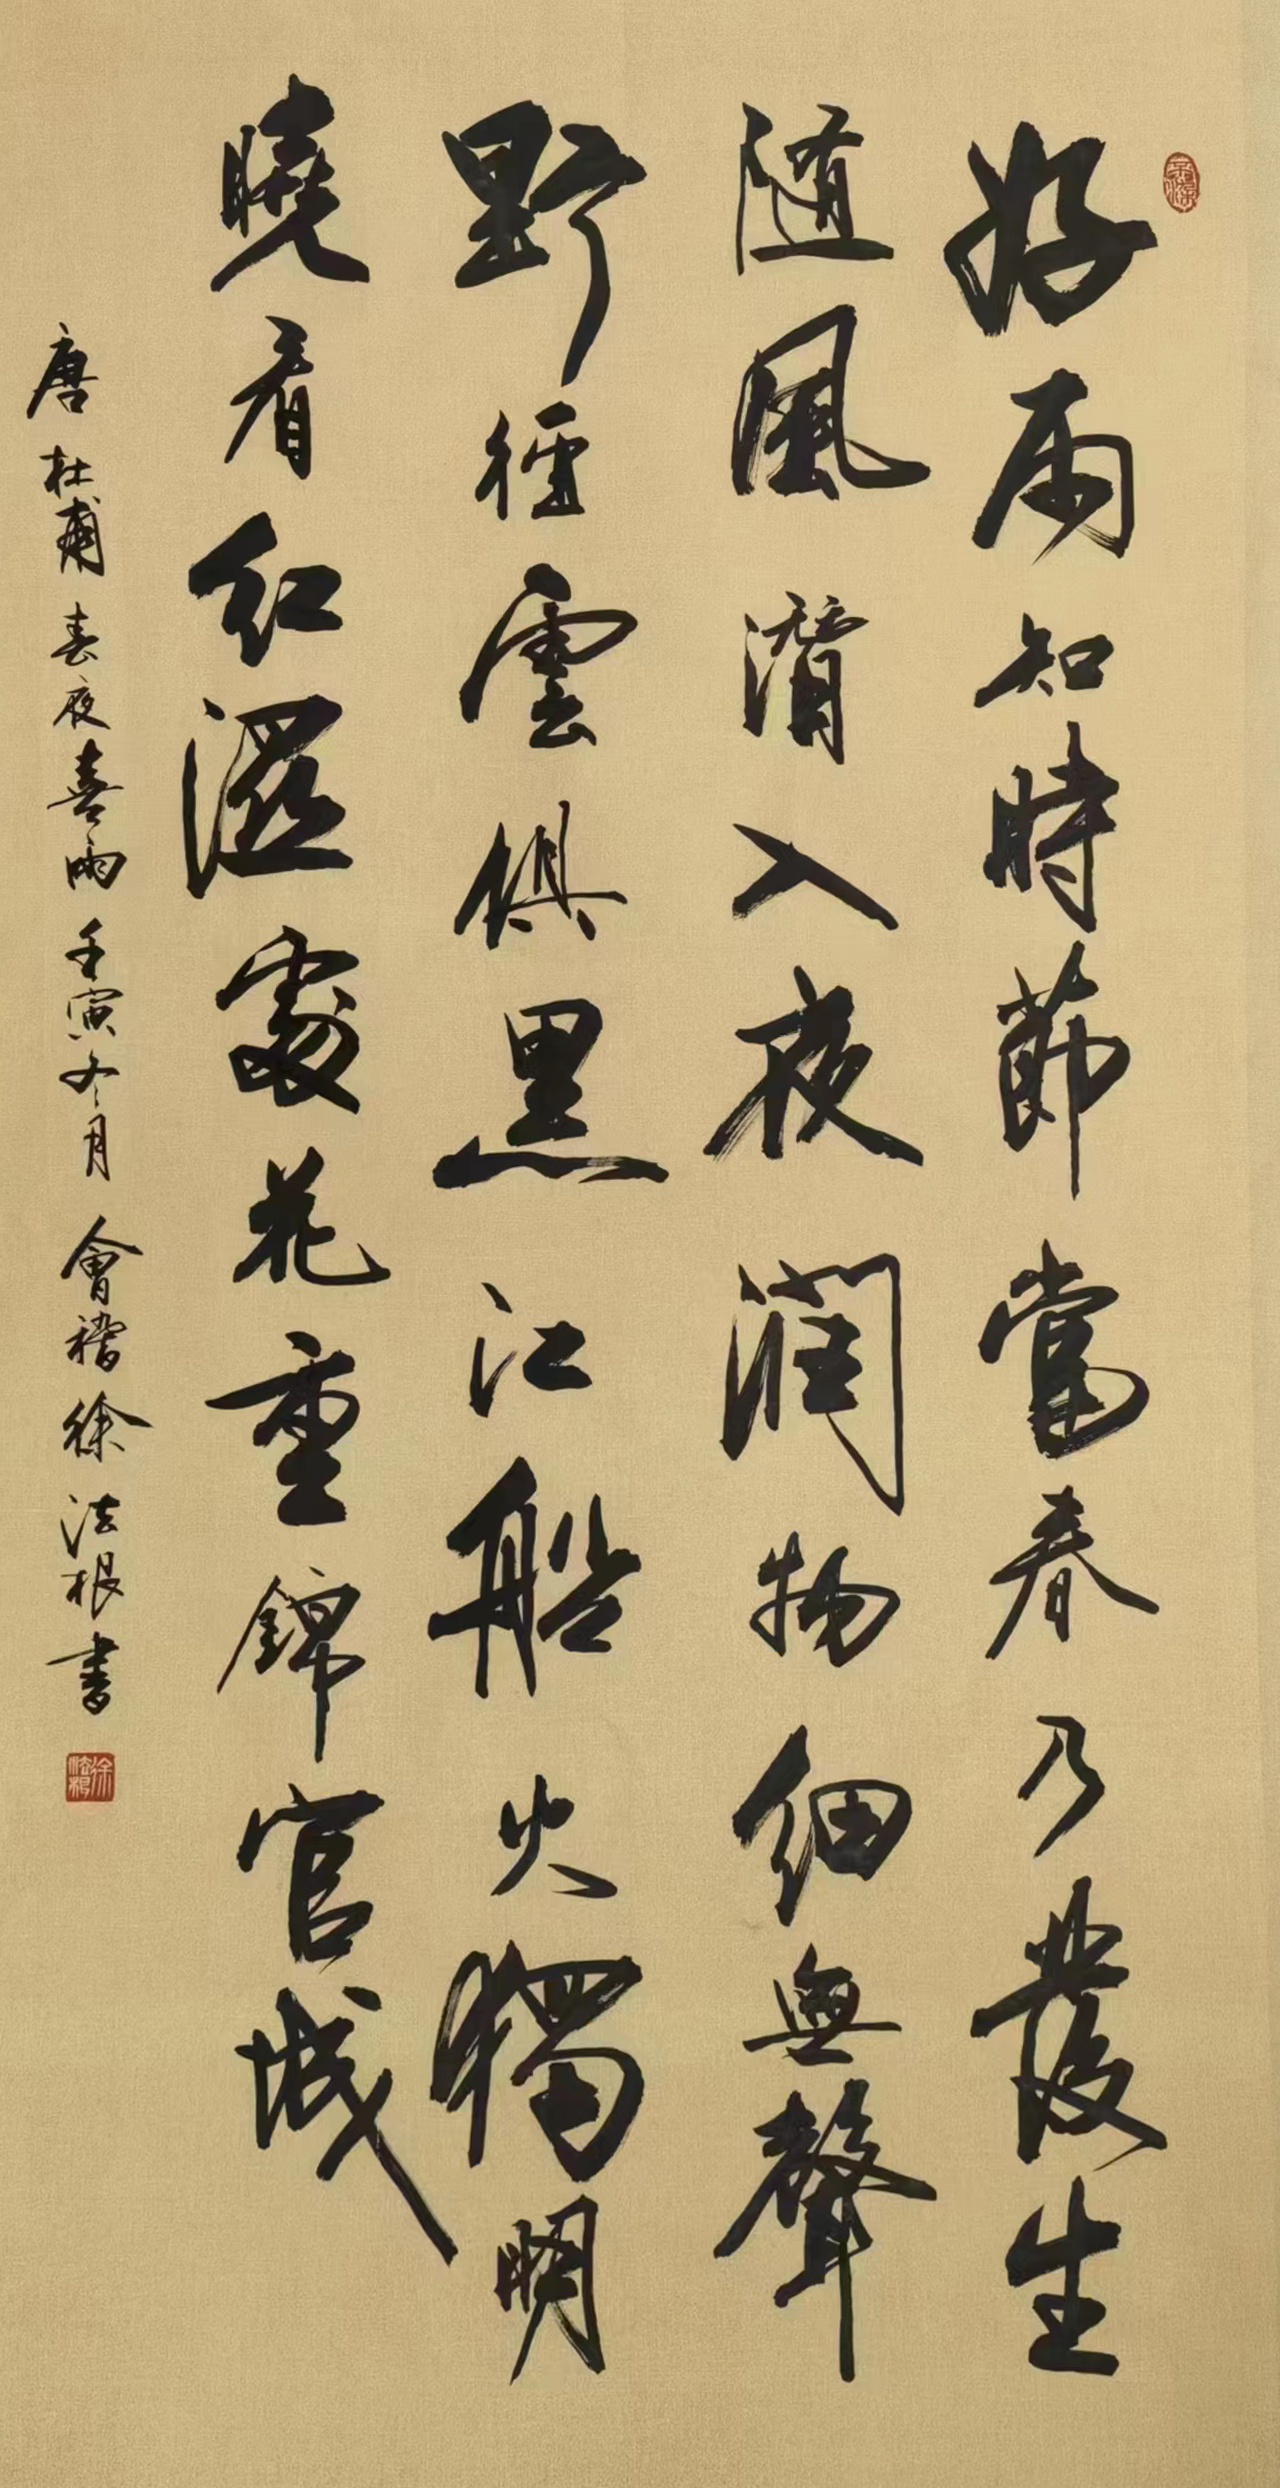 好雨知時節當春乃發生
隨風潛入夜潤物細無聲
野徑雲俱黑江船火獨明
曉看紅濕處花重錦官城
唐杜甫春夜喜雨壬寅冬月會稽徐法根書
徐法根